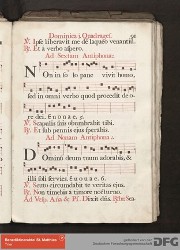 Dominica i. Quadrages. 91
℣. Ipse liberavit me de laqueo venantiũ.
℟. Et à verbo aspero.
Ad Sextam Antiphona:
Non in solo pane vivit homo,
sed in omni verbo quod procedit de o-
re dei. Euouae. 5.
℣. Scapulis suis obumbrabit tibi.
℟. Et sub pennis ejus sperabis.
Ad Nonam Antiphona.
Dominũ deum tuum adorabis, &
illi soli servies. Euouae. 6.
℣. Scuto circumdabit te veritas ejus.
℟. Non timebis à timore nocturno.
Ad Vesp. Aña & Ps. Dixit dñs.
DFG